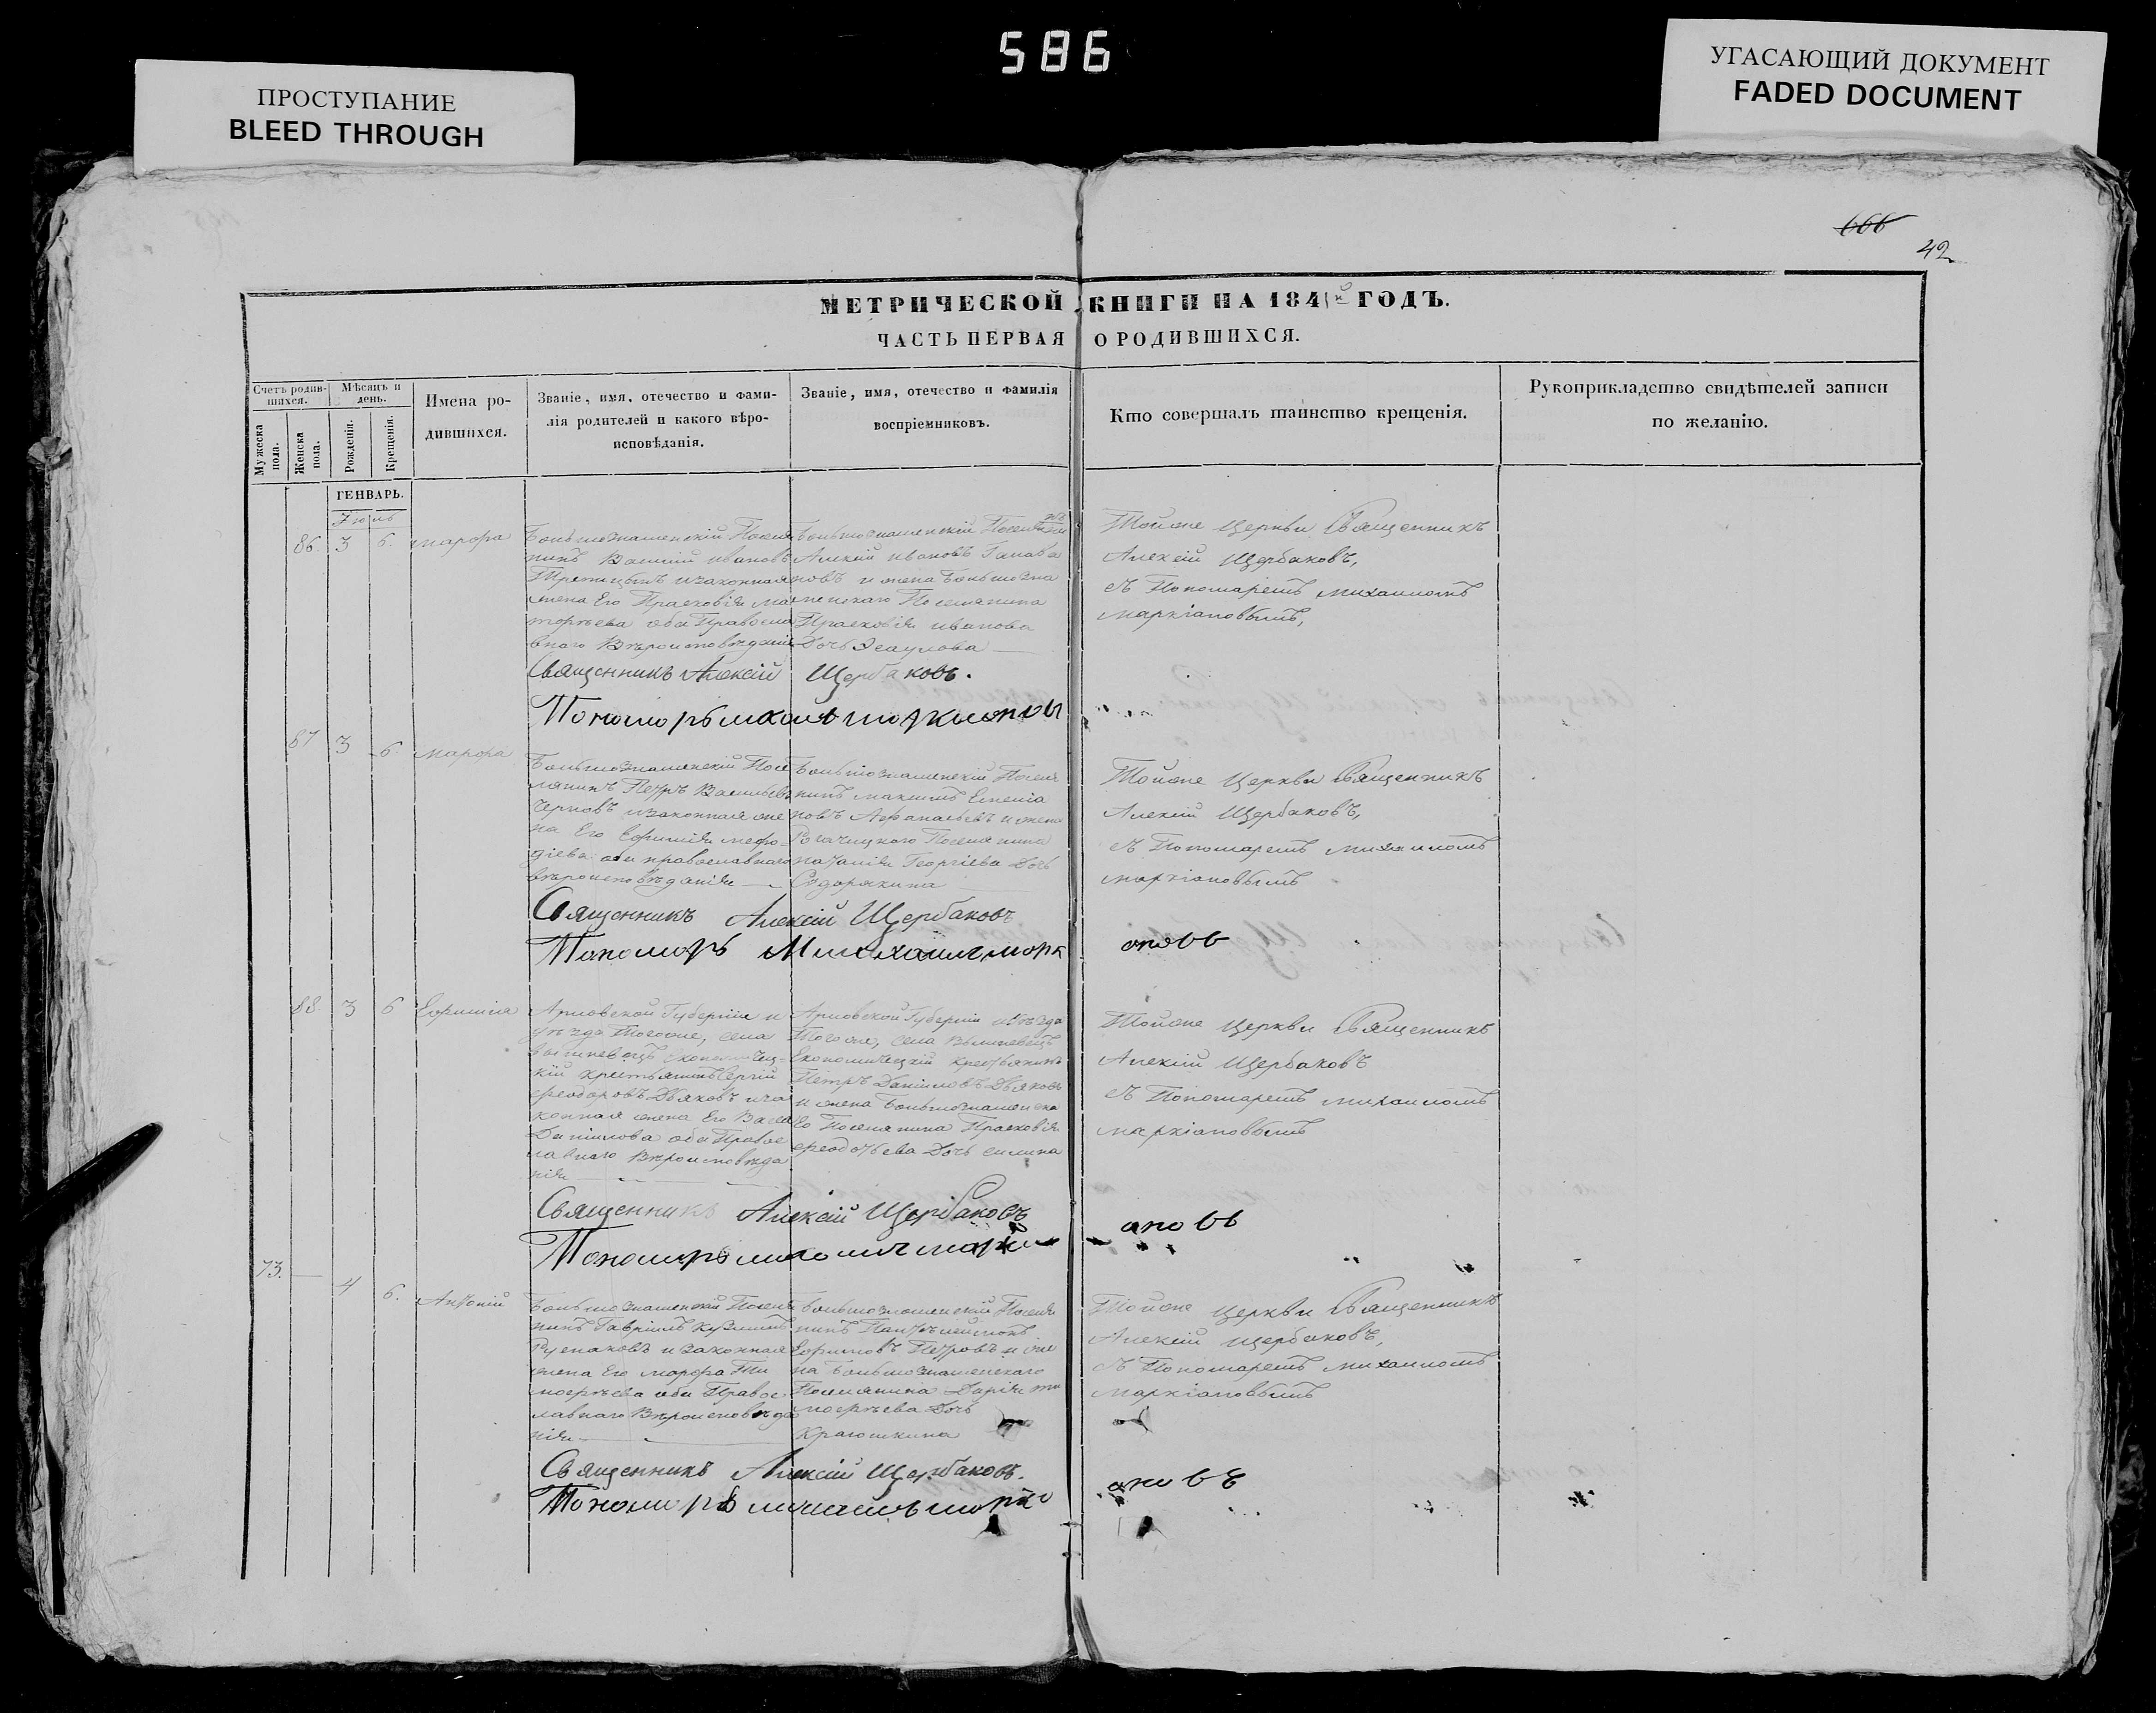 586
ПРОСТУПАНИЕ
BLEED THROUGH
УГАСАЮЩИЙ ДОКУМЕНТ
FADED DOCUMENT
666
42
МЕТРИЧЕСКОЙ КНИГИ НА 1841й ГОДЪ.
ЧАСТЬ ПЕРВАЯ О РОДИВШИХСЯ.
Счетъ родив-
шихся.
Мужеска пола.
Женска пола.
Мѣсяцъ и
день.
Рожденія.
Крещенія.
Имена ро-
дившихся.
Званіе, имя, отечество и фами-
лія родителей и какого вѣро-
исповѣданія.
Званіе, имя, отечество и фамилія
воспріемниковъ.
Кто совершалъ таинство крещенія.
Рукоприкладство свидѣтелей записи
по желанію.
ГЕНВАРЬ.
Іюль
86 3 6. Марфа
Большознаменскій Поселя
нинъ Василій Ивановъ
и законная
жена Его Прасковія Ма
твѣева оба Правосла
внаго Вѣроисповѣданія
Большознаменскій
Алексій Ивановъ
новъ и жена Большозна
менскаго Поселянина
Прасковія Иванова
Дочь Эсаулова
Тойже Церкви Священникъ
Алексій Щербаковъ,
съ Пономаремъ Михаиломъ
Маркіановымъ,
Священникъ Алексій Щербаковъ.
Пономорь
87 3 6. Марфа
Большознаменскій Посе
лянинъ Петръ Васильевъ
Черновъ и законная же
на Его Ефимія Мефо
діева оба православнаго
вѣроисповѣданія
Большознаменскій Поселя
нинъ Максимъ
новъ Афанасьевъ и жена
Рогачицкого Поселянина
Наталія Георгіева Дочь
Сидорякина
Тойже Церкви Священникъ
Алексій Щербаковъ,
съ Пономаремъ Михаиломъ
Маркіановымъ
Священникъ Алексій Щербаковъ
Пономорь Михаилъ Марк ановъ
88 3 6 Ефимія
Арловской Губерніи и
уѣзда Тогоже, села
Економичес-
кій крестьянинъ Сергій
Феодоровъ Дьяковъ и за
конная жена Его Васса
Даніилова оба Правос
лавнаго Вѣроисповѣда
нія
Арловской Губерніи и Уѣзда
Тогоже, села
Економическій крестьянинъ
Петръ Даніиловъ Дьяковъ
и жена Большознаменска
го Поселянина Прасковія
Дочь Силина
Тойже Церкви Священникъ
Алексій Щербаковъ
съ Пономаремъ Михаиломъ
Маркіановымъ
Священникъ Алексій Щербаковъ
Пономорь ановъ
73. 4 6. Антоній
Большознаменскій Поселя
нинъ Гавріилъ Кузминъ
Русаковъ и законная
жена Его Марфа Ти
мофѣева оба Правос
лавнаго Вѣроисповѣда
нія
Большознаменскій Поселя
нинъ Пантелеимонъ
Ефимовъ Петровъ и же
на Большознаменскаго
Поселянина Дарія Ти
мофѣева Дочь
Тойже Церкви Священникъ
Алексій Щербаковъ,
съ Пономаремъ Михаиломъ
Маркіановымъ
Священникъ Алексій Щербаковъ.
Пономорь ановъ